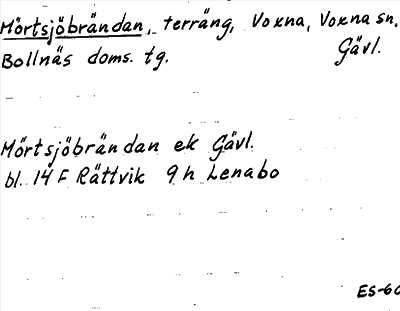 Mörtsjöbrändan, terräng, Voxna, Voxna sn,
Bollnäs doms. tg. Gävl.
Mörtsjöbrändan ek Gävl.
bl. 14 F Rättvik 9 h Lenabo
ES-60